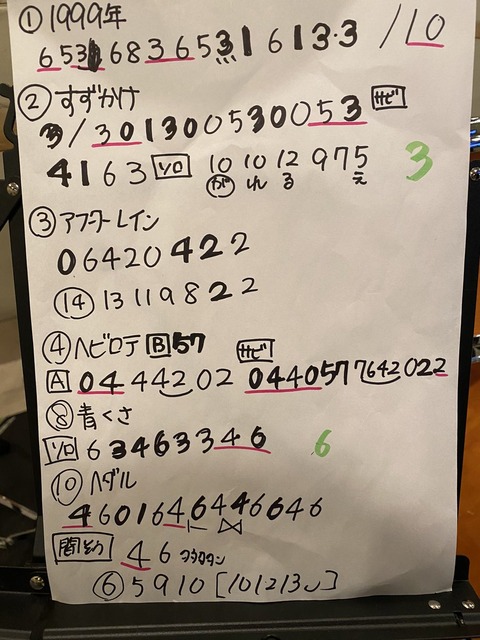 ① 1999年
653 6836531613·3 /10
② すずかけ
3/3013005300053 サビ
4163 ソロ 10 10 12 975 3
が れ る え
③ アフターレイン
06420422
⑭ 13119822
④ ヘビロテ B 57 サビ
A 04444202 044057 7642022
⑧ 青くさ
ソロ 63463346 6
⑩ ペダル
4601646446646
間そう 46 タタタタン
⑥ 5910 [101213]